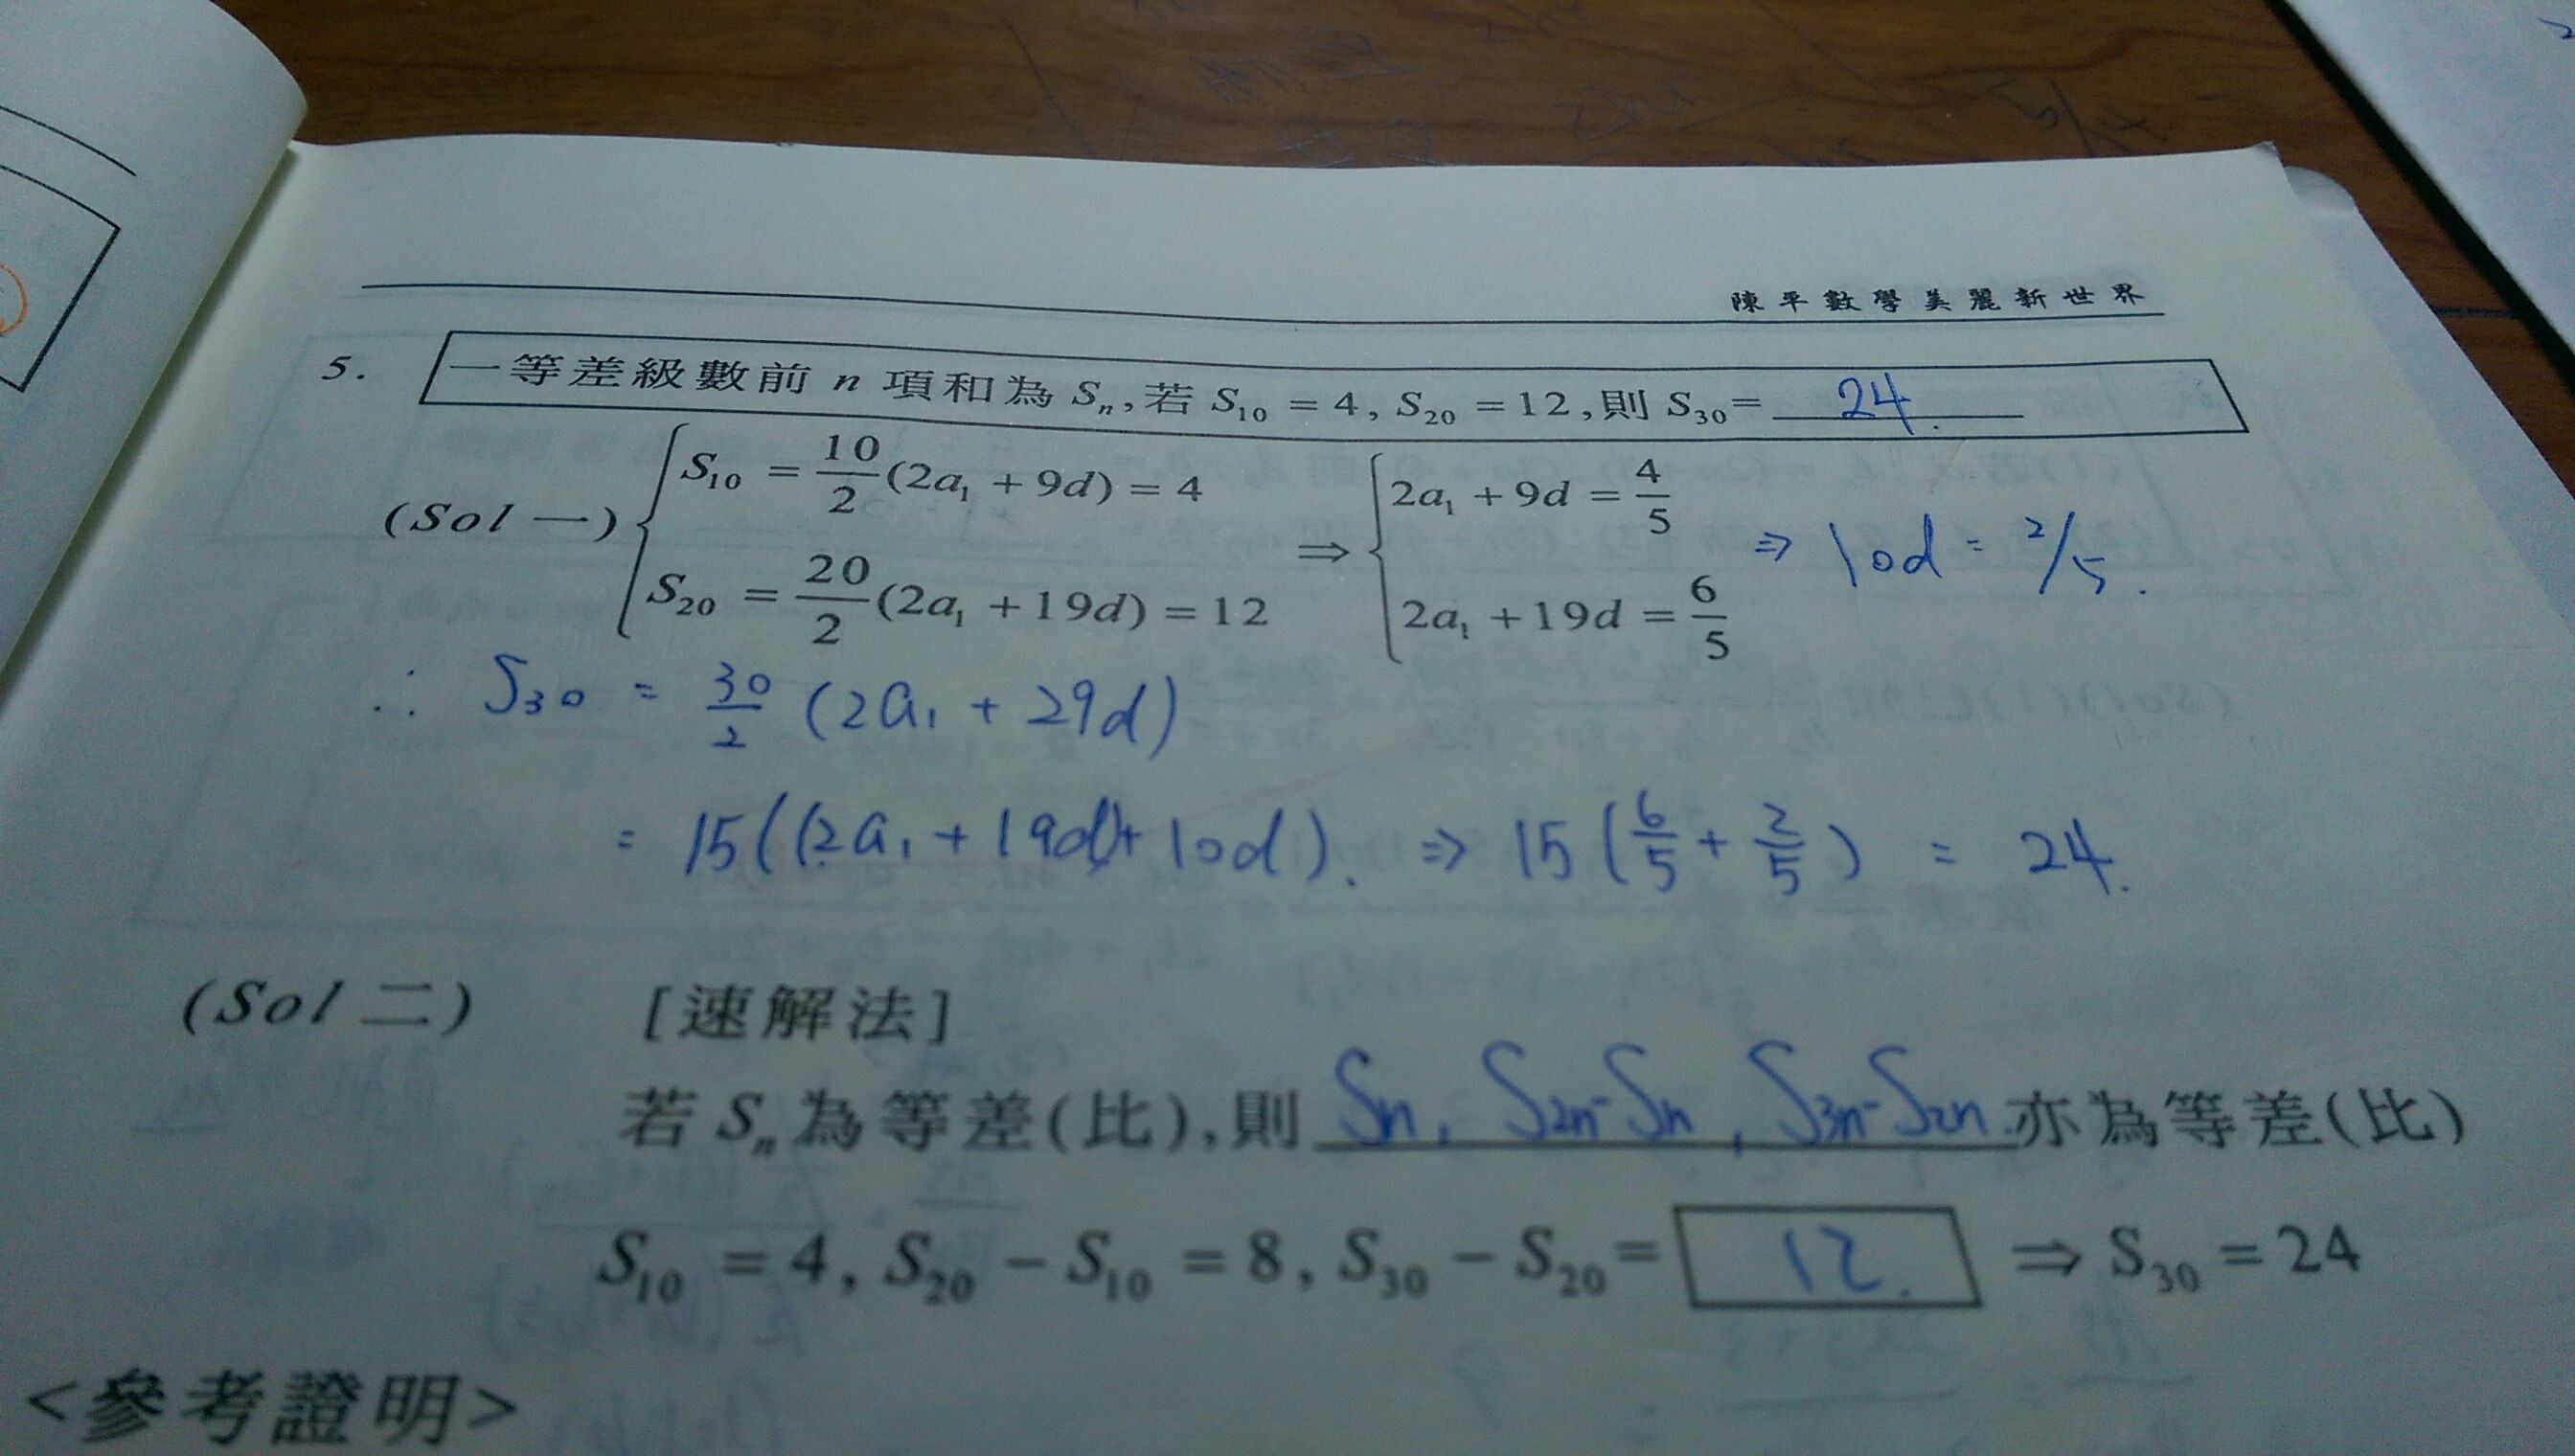 陳平數學美麗新世界
5. 一等差級數前 n 項和為 Sₙ,若 S₁₀ = 4, S₂₀ = 12,則 S₃₀= 24.
(Sol 一) { S₁₀ = 10/2 (2a₁ + 9d) = 4 ⇒ { 2a₁ + 9d = 4/5 ⇒ 10d = 2/5.
S₂₀ = 20/2 (2a₁ + 19d) = 12 2a₁ + 19d = 6/5
∴ S₃₀ = 30/2 (2a₁ + 29d)
= 15((2a₁ + 19d)+ 10d). ⇒ 15 (6/5 + 2/5) = 24.
(Sol 二) [速解法]
若 Sₙ 為等差(比),則 Sn, S2n-Sn, S3n-S2n. 亦為等差(比)
S₁₀ = 4, S₂₀ − S₁₀ = 8, S₃₀ − S₂₀ = 12. ⇒ S₃₀ = 24
<參考證明>